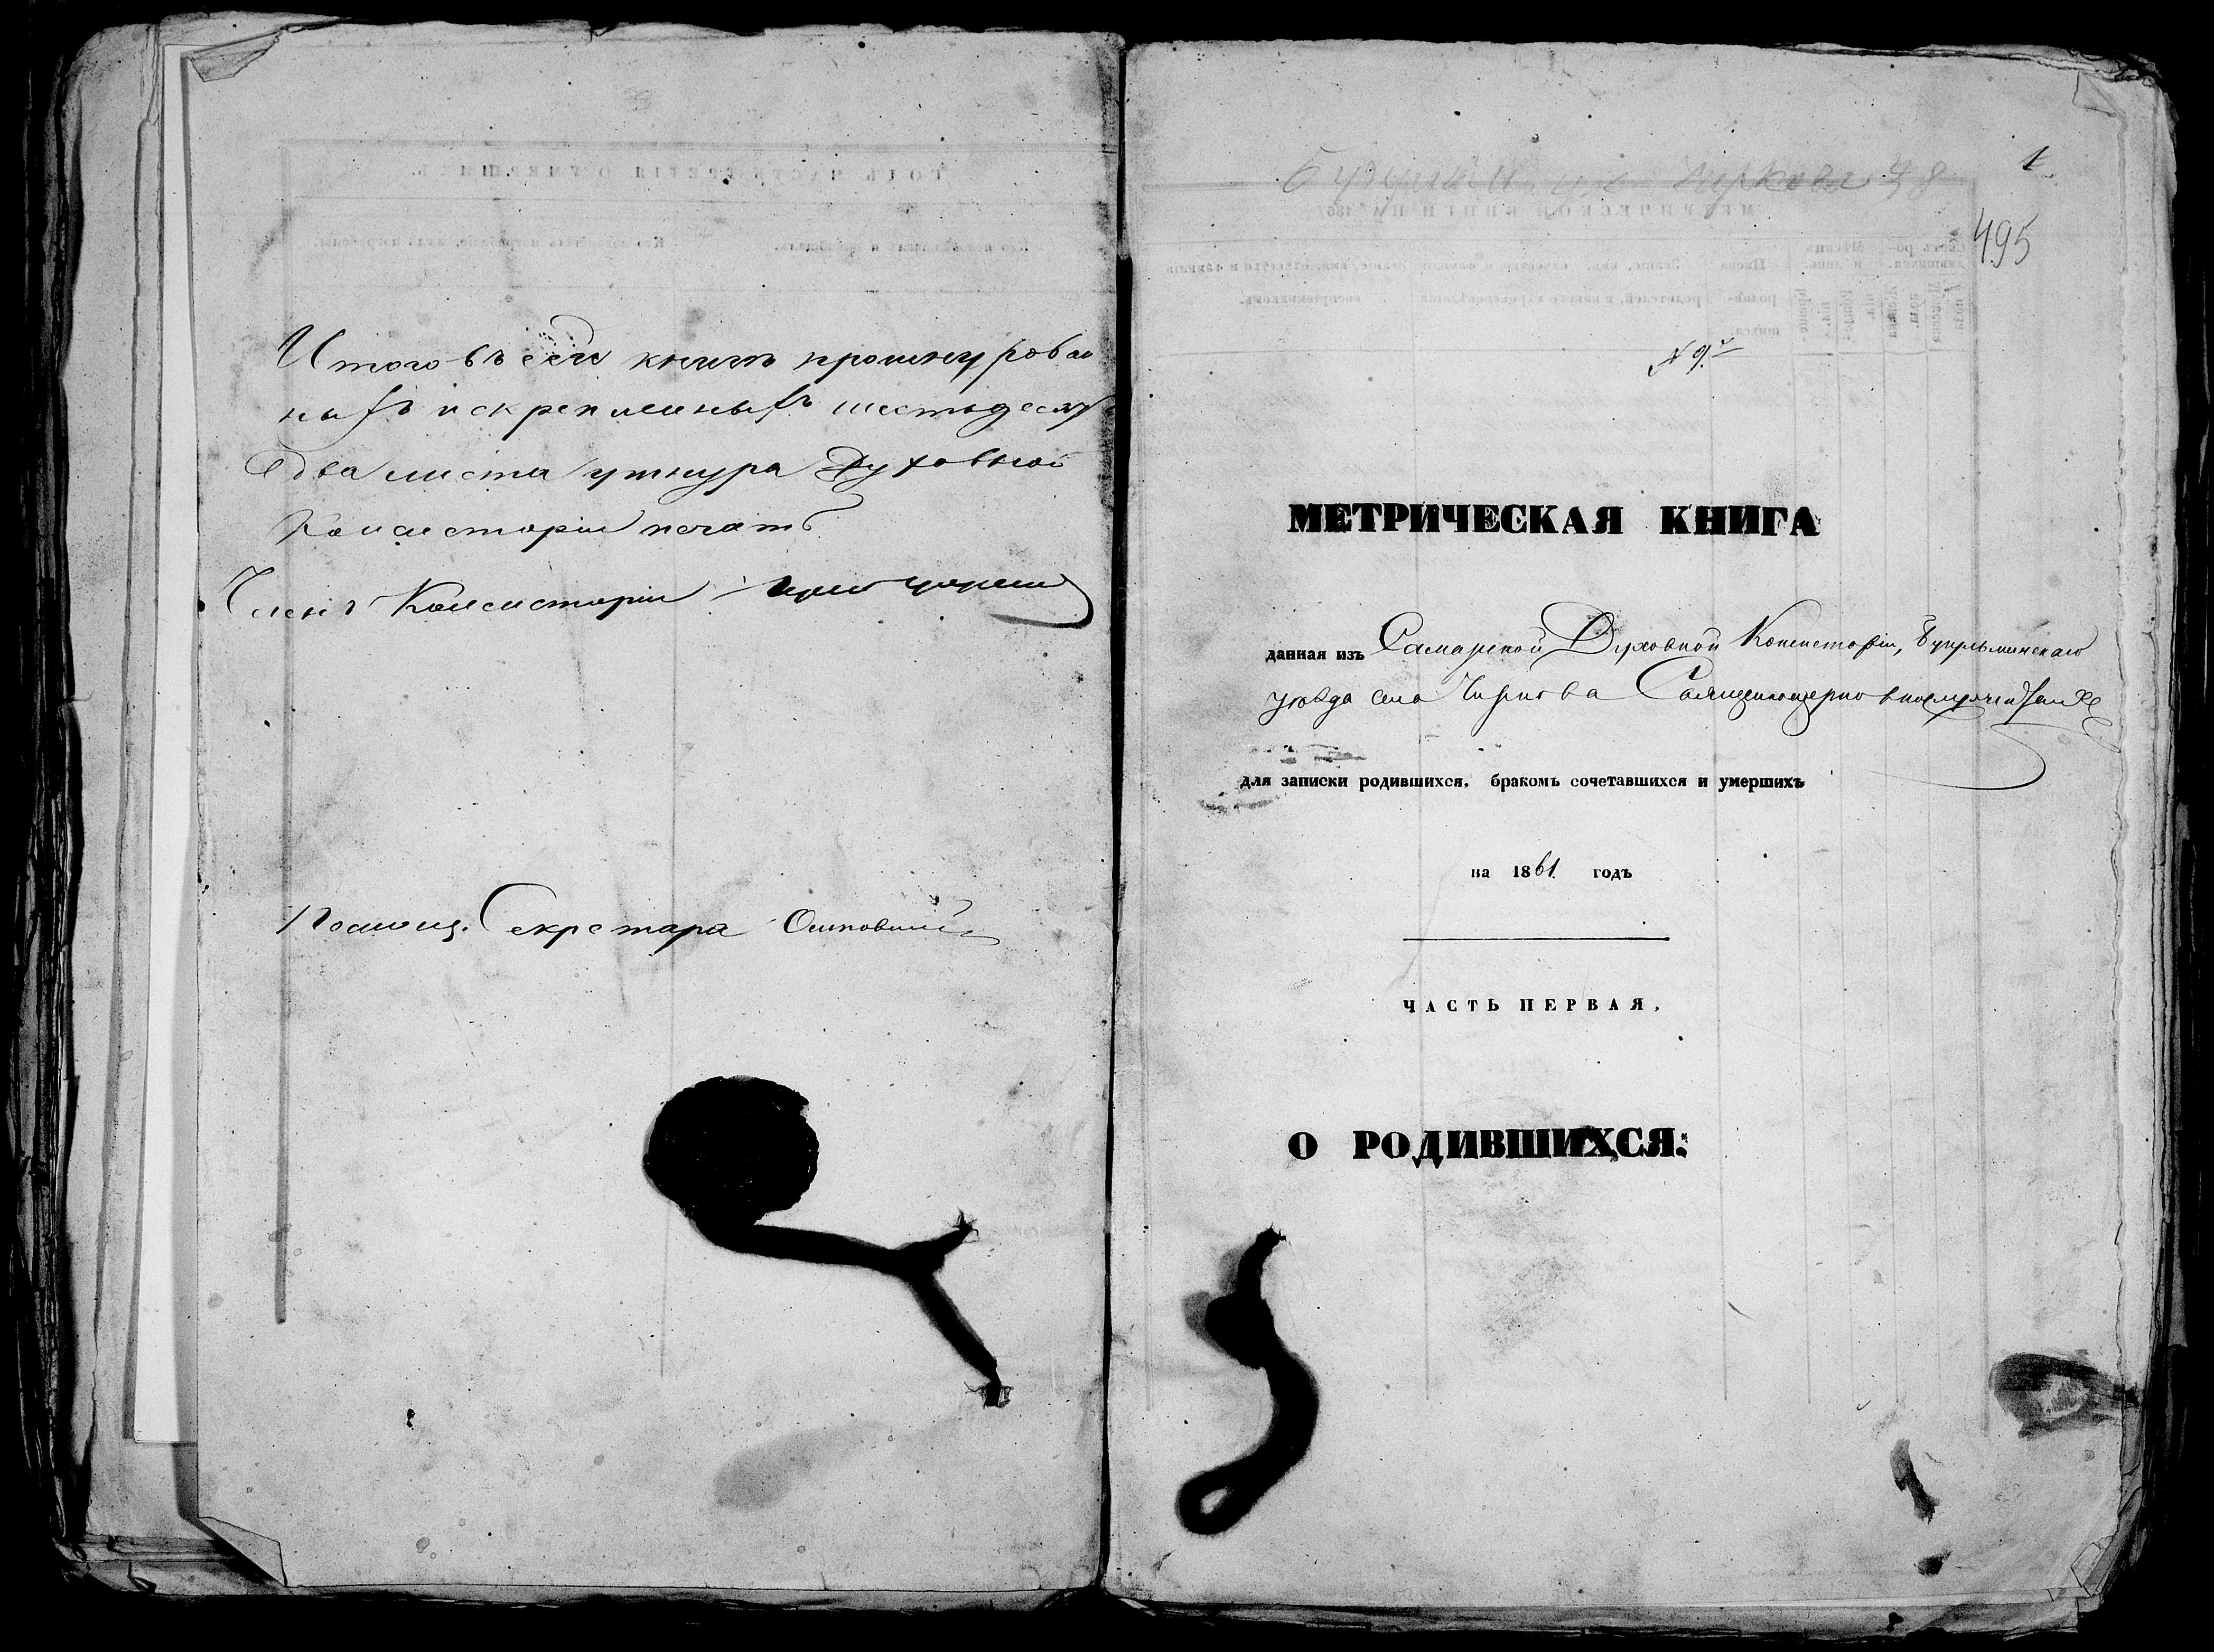 Итого въ сей книгѣ прошнурован
ныхъ и скрепленныхъ шестьдесятъ
два листа у шнура Духовной
Консисторіи печать
Членъ Консисторіи
Помощ. Секретаря
1
Чиркова 48
495
№ 9.й
МЕТРИЧЕСКАЯ КНИГА
данная изъ Самарской Духовной Консисторіи, Бугульминскаго
уѣзда села Чиркова Священноцерковнослужителямъ
для записки родившихся, бракомъ сочетавшихся и умершихъ
на 1861 годъ
ЧАСТЬ ПЕРВАЯ,
О РОДИВШИХСЯ: